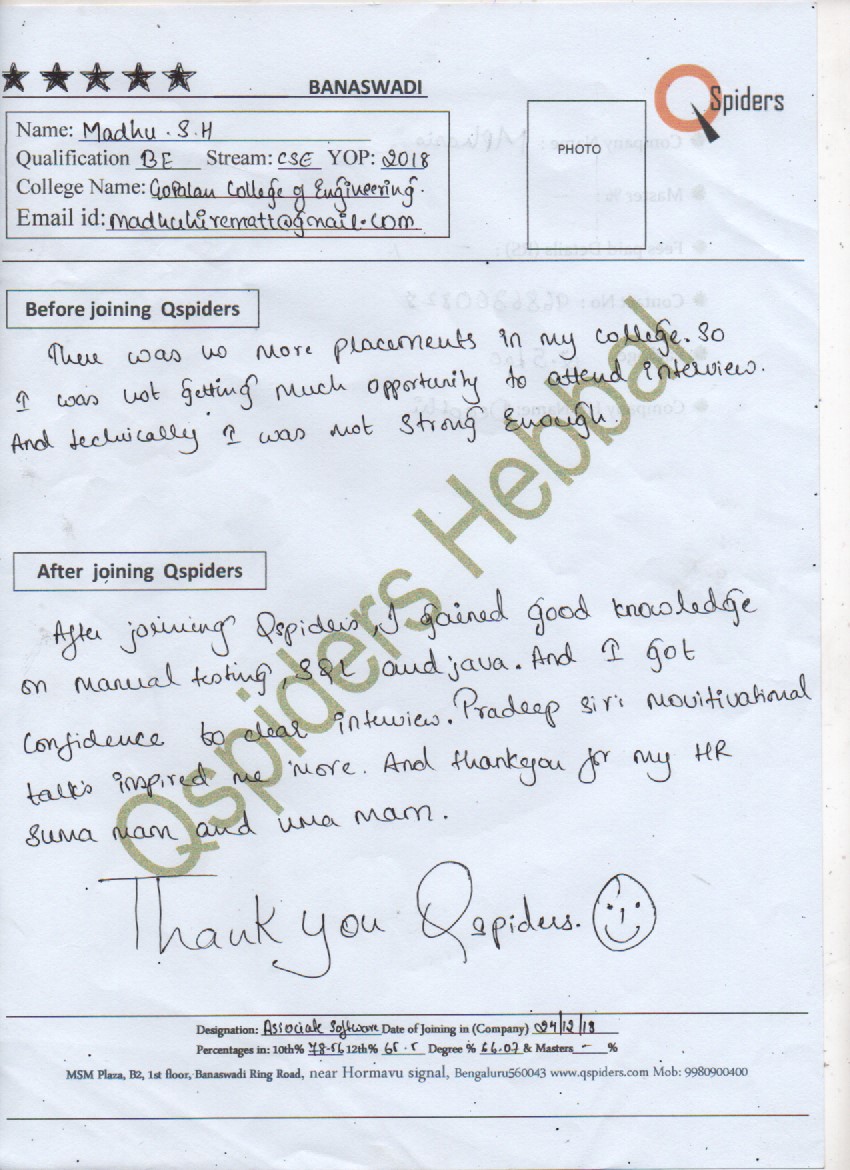 BANASWADI
QSpiders
Name: Madhu . S.H
Qualification BE Stream: CSE YOP: 2018
College Name: Gopalan College of Engineering.
Email id: madhuhirematt@gmail.com
PHOTO
Before joining Qspiders
There was no more placements in my college. So
I was not getting much opportunity to attend interview.
And technically I was not strong Enough.
After joining Qspiders
After joining Qspiders, I gained good knowledge
on manual testing, SQL and java. And I got
confidence to clear interview. Pradeep sir's
talks inspired me more. And thankyou for my HR
Suma mam and uma mam.
Thank you Qspiders.
Qspiders Hebbal
Designation: Associate Software Date of Joining in (Company) 24/12/18
Percentages in: 10th% 78.56 12th% 65.5 Degree % 66.07 & Masters - %
MSM Plaza, B2, 1st floor, Banaswadi Ring Road, near Hormavu signal, Bengaluru560043 www.qspiders.com Mob: 9980900400